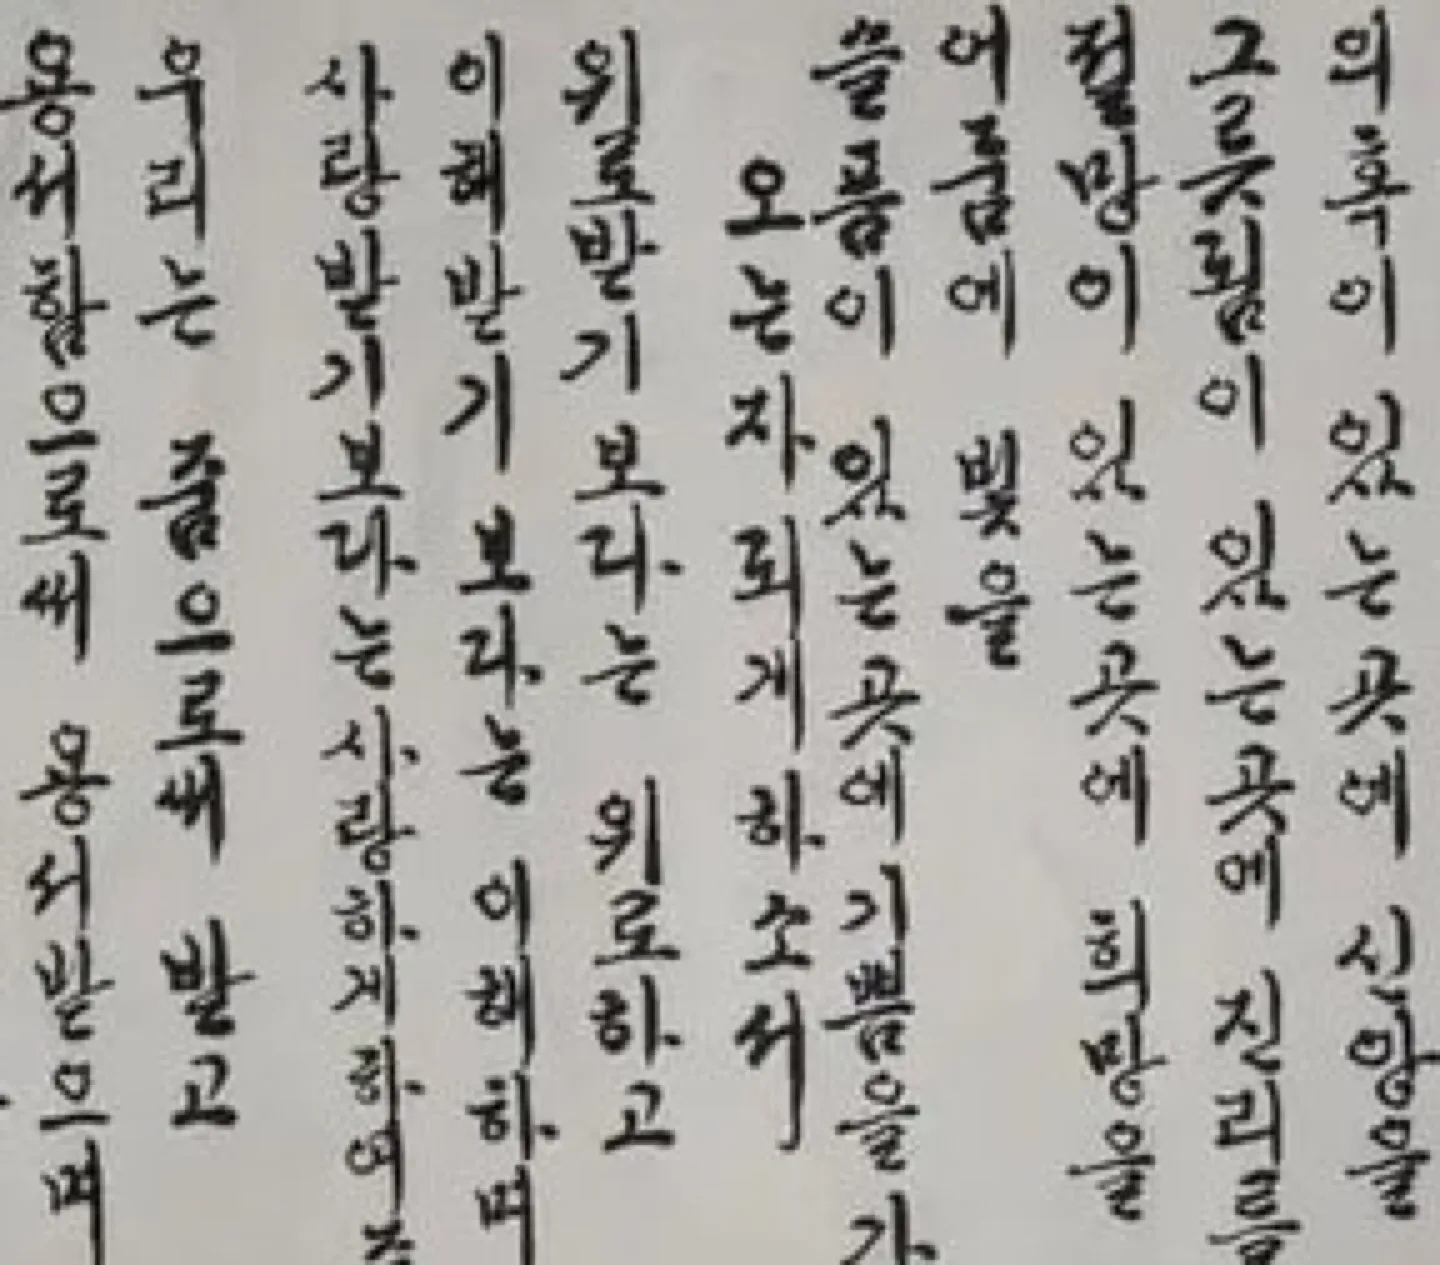 의혹이 있는 곳에 신앙을
그릇됨이 있는 곳에 진리를
절망이 있는 곳에 희망을
어둠에 빛을
슬픔이 있는 곳에 기쁨을 가
오는 자 되게 하소서
위로받기 보라는 위로하고
이해받기 보라는 이해하며
사랑받기보라는 사랑하게하여주
우리는 줌으로써 받고
용서함으로써 용서받으며